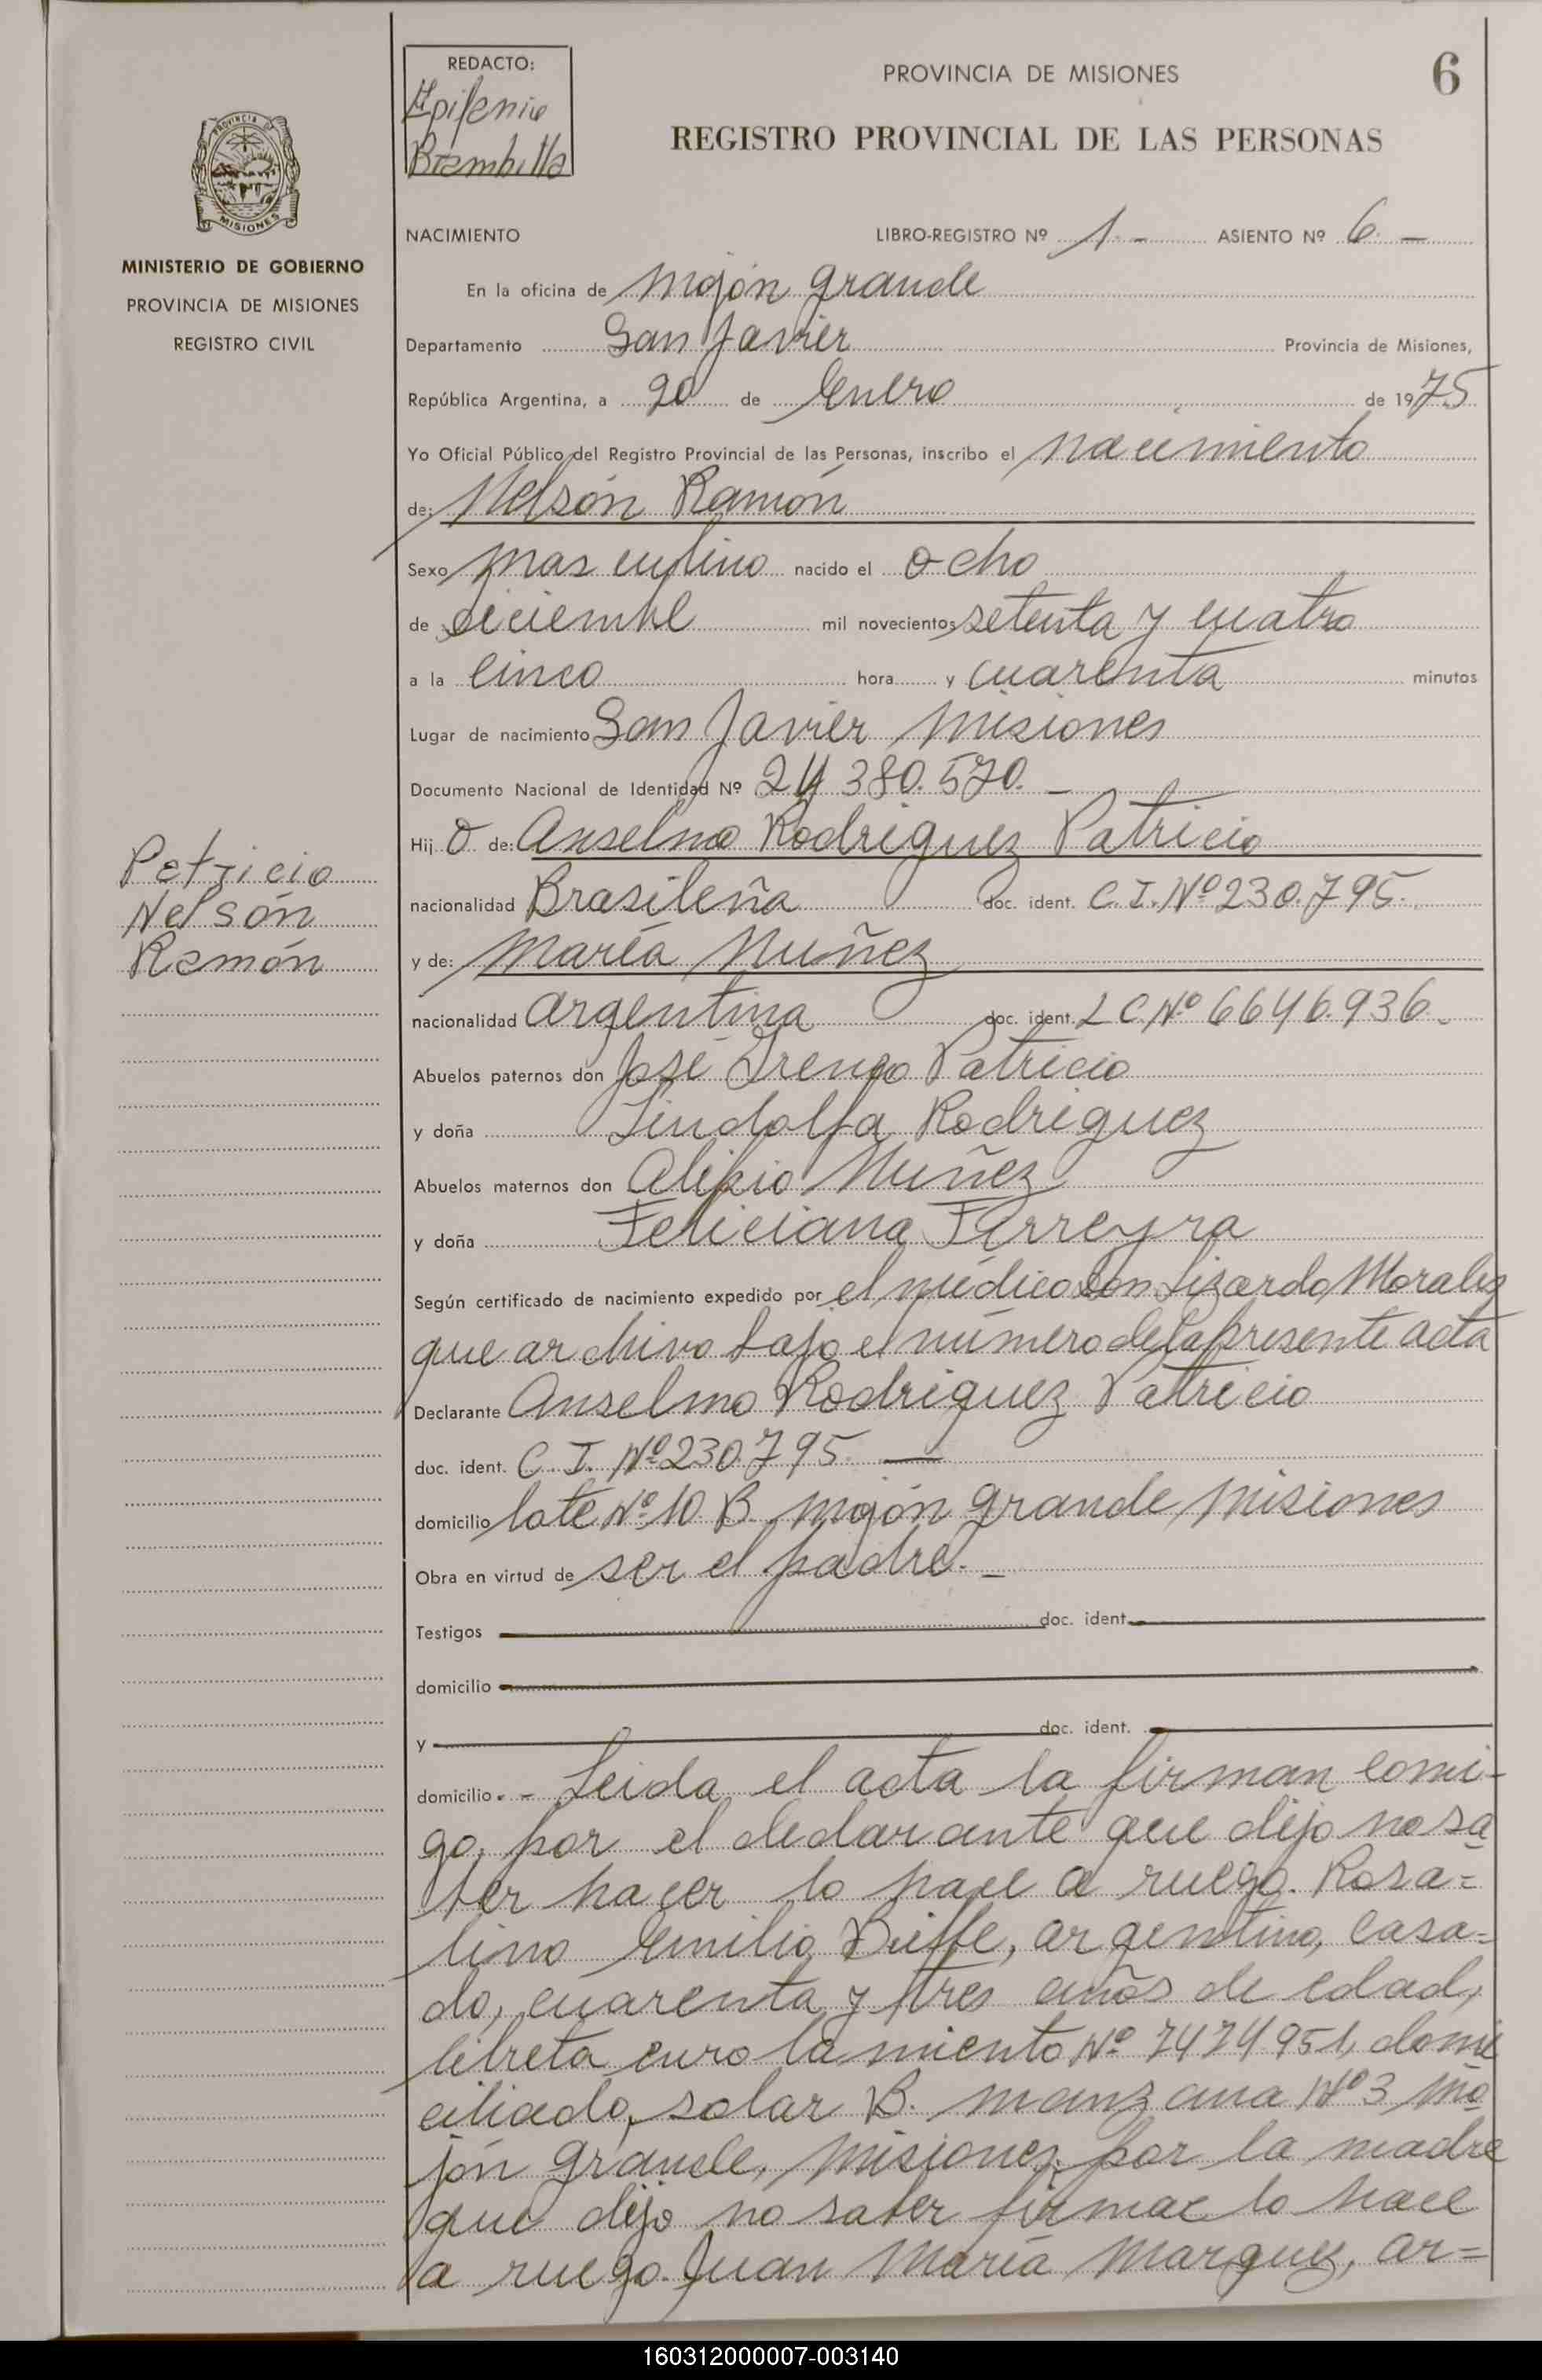 REDACTO:
Epifenio
Brembilla
PROVINCIA DE MISIONES
6
REGISTRO PROVINCIAL DE LAS PERSONAS
PROVINCIA
MISIONES
MINISTERIO DE GOBIERNO
PROVINCIA DE MISIONES
REGISTRO CIVIL
NACIMIENTO LIBRO-REGISTRO Nº 1.- ASIENTO Nº 6.-
En la oficina de Mojón grande
Departamento San Javier Provincia de Misiones,
República Argentina, a 20 de Enero de 1975
Yo Oficial Público del Registro Provincial de las Personas, inscribo el Nacimiento
de: Nelsón Ramón
Sexo masculino nacido el ocho
de diciembre mil novecientos setenta y cuatro
a la cinco hora y cuarenta minutos
Lugar de nacimiento San Javier Misiones
Documento Nacional de Identidad Nº 24 380.570.-
Hij o de: Anselmo Rodriguez Patricio
nacionalidad Brasileña doc. ident. C.I.Nº 230.795.
y de: María Nuñez
nacionalidad argentina doc. ident. L C.Nº 6646.936.
Abuelos paternos don José Irengo Patricio
y doña Lindolfa Rodriguez
Abuelos maternos don Alipio Nuñez
y doña Feliciana Ferreyra
Según certificado de nacimiento expedido por el médico don Lizardo Morales
que archivo bajo el número de la presente acta
Declarante Anselmo Rodriguez Patricio
doc. ident. C.I. Nº 230.795.—
domicilio lote Nº 10 B. Mojón grande Misiones
Obra en virtud de ser el padre.-
Testigos doc. ident.
domicilio
y doc. ident.
domicilio.- Leida el acta la firman comi-
go, por el declarante que dijo no sa
ber hacer lo hace a ruego. Rosa=
lino Emilio Biffe, argentino, casa=
do, cuarenta y tres años de edad,
libreta enrolamiento Nº 7474951, domi
ciliado, solar B. manzana Nº 3 Mo
jón grande, Misiones, por la madre
que dijo no saber firmar lo hace
a ruego. Juan María Marquez, ar=
Petricio
Nelsón
Remón
160312000007-003140